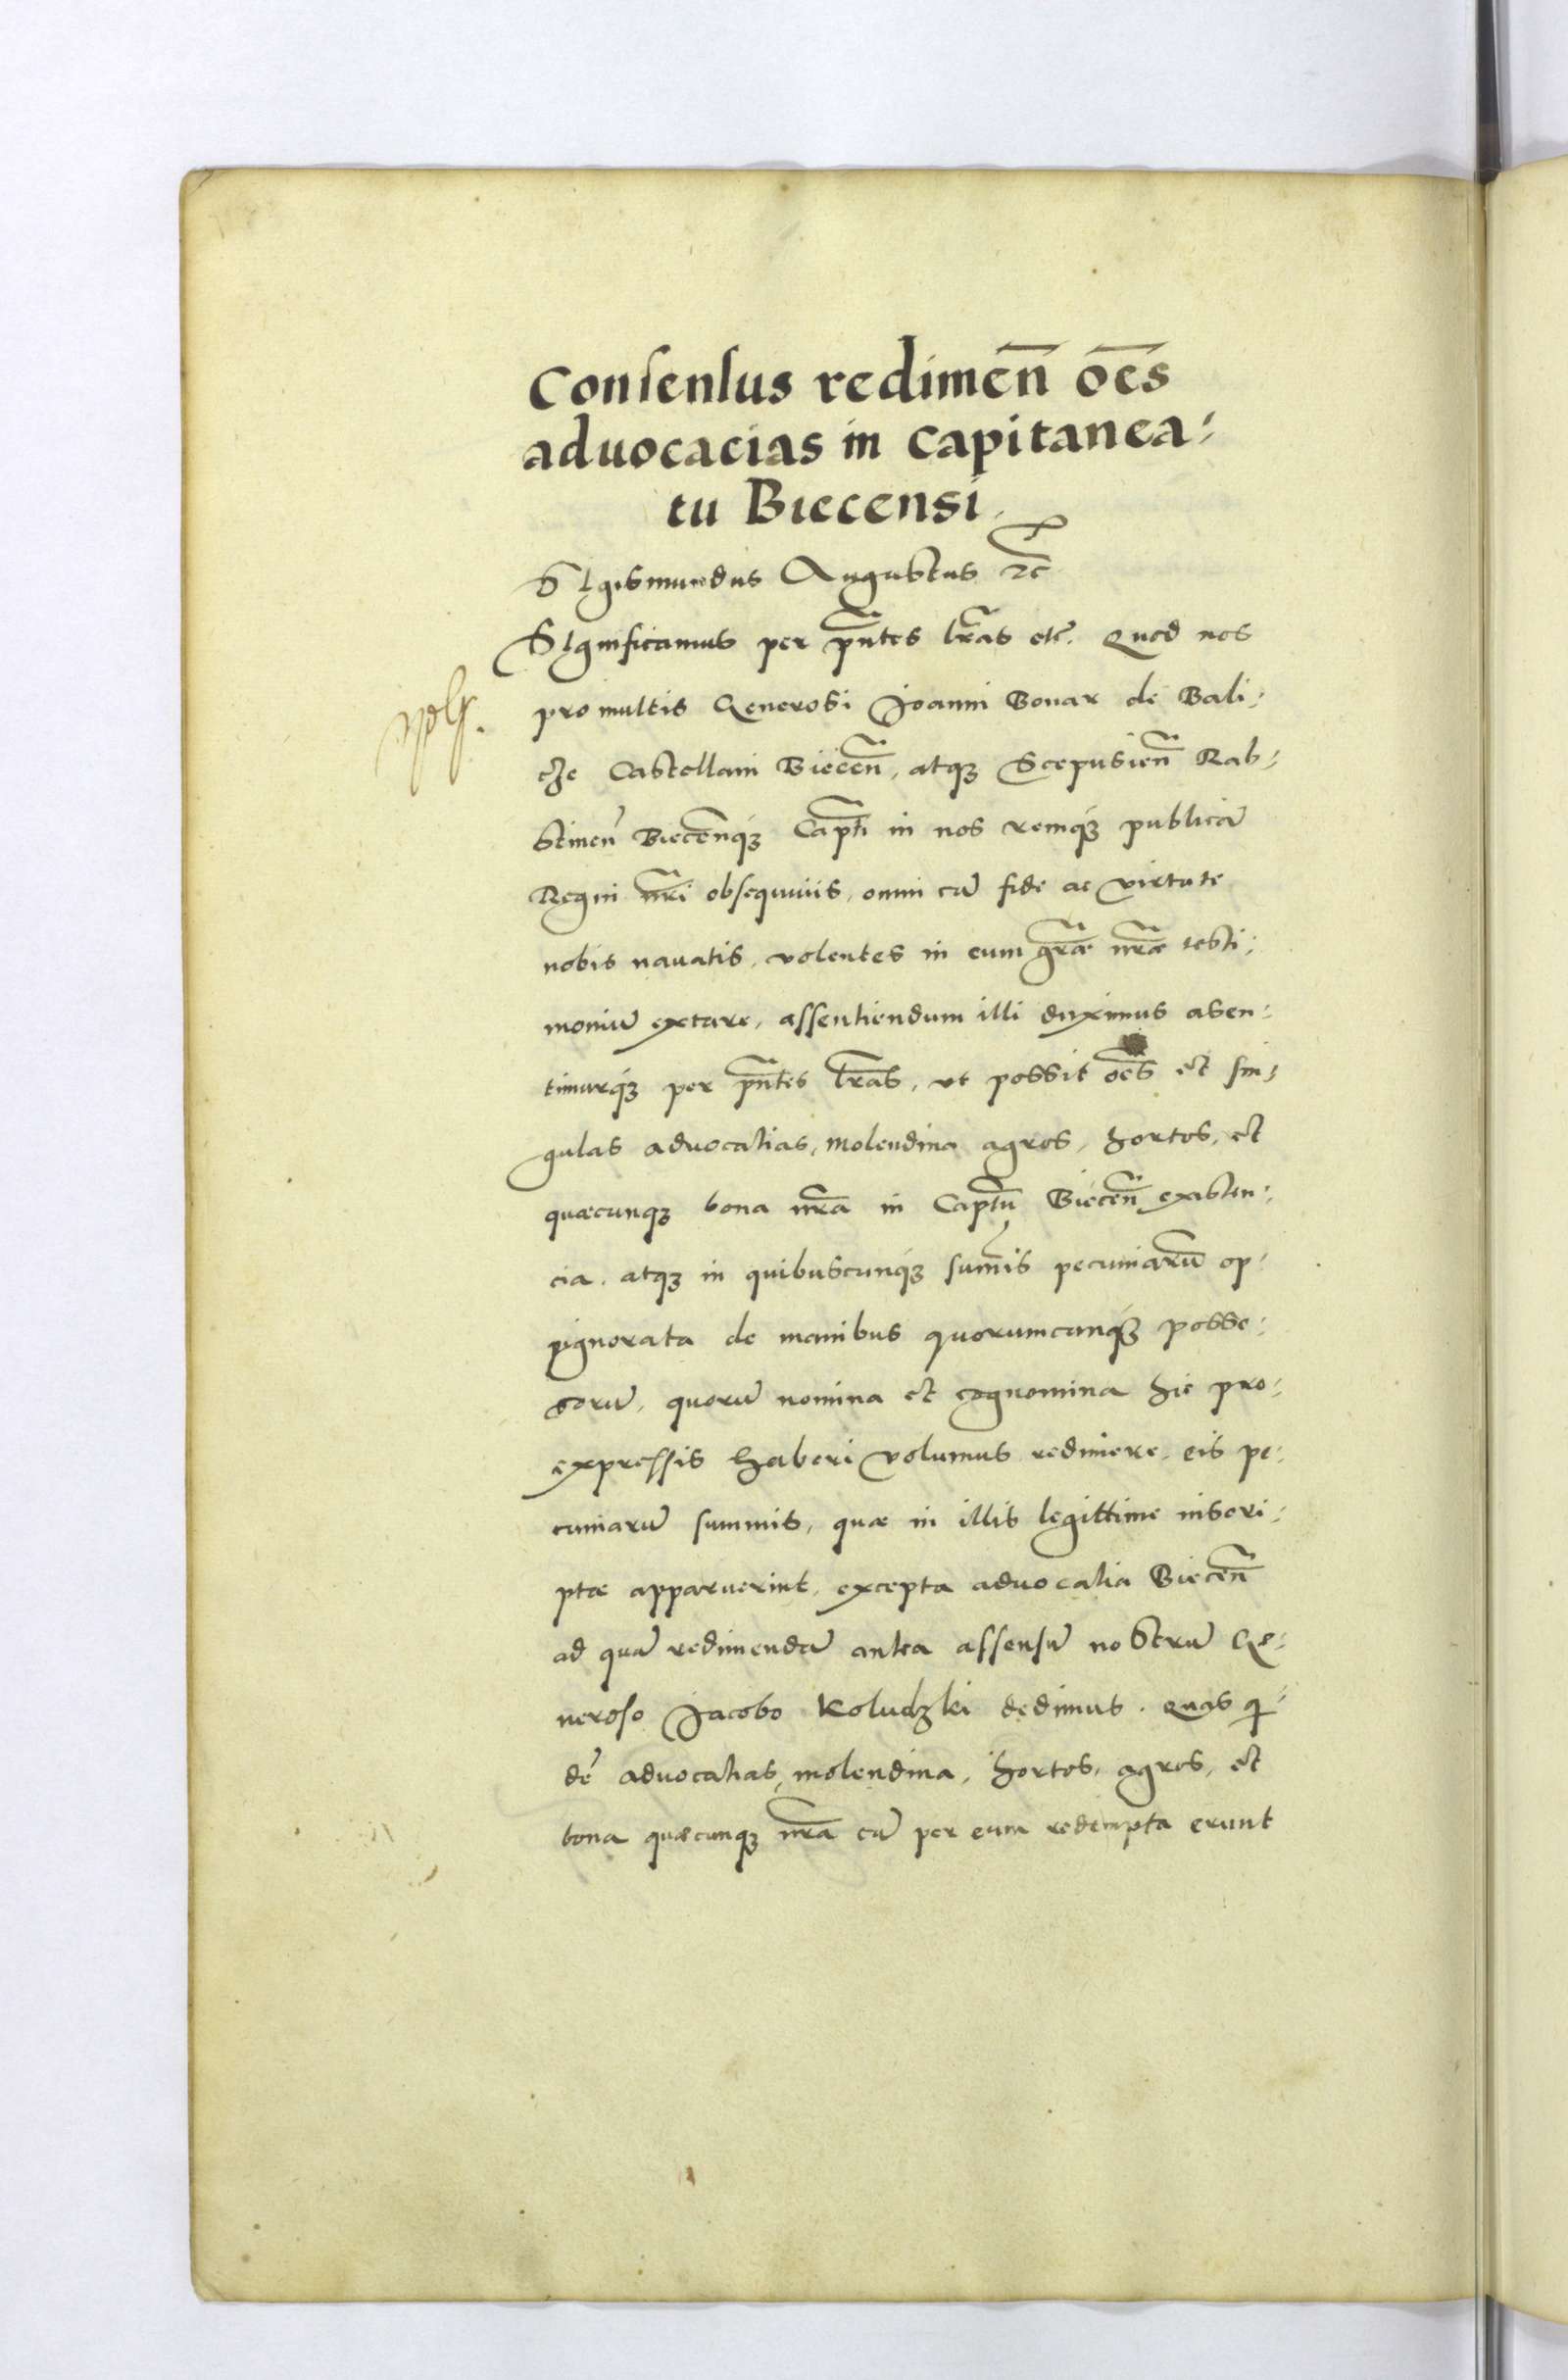 Consensus redimen̄ oēs
aduocacias in capitanea-
tu Biecensi.
SIgismundus Augustus etc̄
SIgnificamus per pn̄tes lr̄as etc. Quod nos
pro multis Generosi Joanni Bonar de Bali-
cze Castellani Biecen̄, atq3 Scepusien̄ Rab-
stinen̄ Biecen̄q3 Capt̄i in nos remq3 publicā
Regni nr̄i obsequuiis, omni cū fide ac virtute
nobis nauatis, volentes in eum gr̄æ nr̄æ testi-
moniū extare, assentiendum illi duximus asen-
timurq3 per pn̄tes lr̄as, vt possit oēs et sin-
gulas aduocatias, molendina agros, hortos, et
quæcunq3 bona nr̄a in Captū Biecen̄ existen-
cia, atq3 in quibuscunq3 sum̄is pecuniarū op-
pignorata de manibus quorumcunq3 posse-
sorū, quorū nomina et cognomina hic pro
expressis haberi volumus redimere, eis pe-
cuniarū summis, quæ in illis legittime inscri-
ptæ apparuerint, excepta aduocatia Biecen̄
ad quā redimendā antea assensū nostrum Ge-
neroso Jacobo Koludzki dedimus. Quas qi-
dē aduocatias, molendina, hortos, agros, et
bona quæcunq3 nr̄a cū per eum redempta erunt